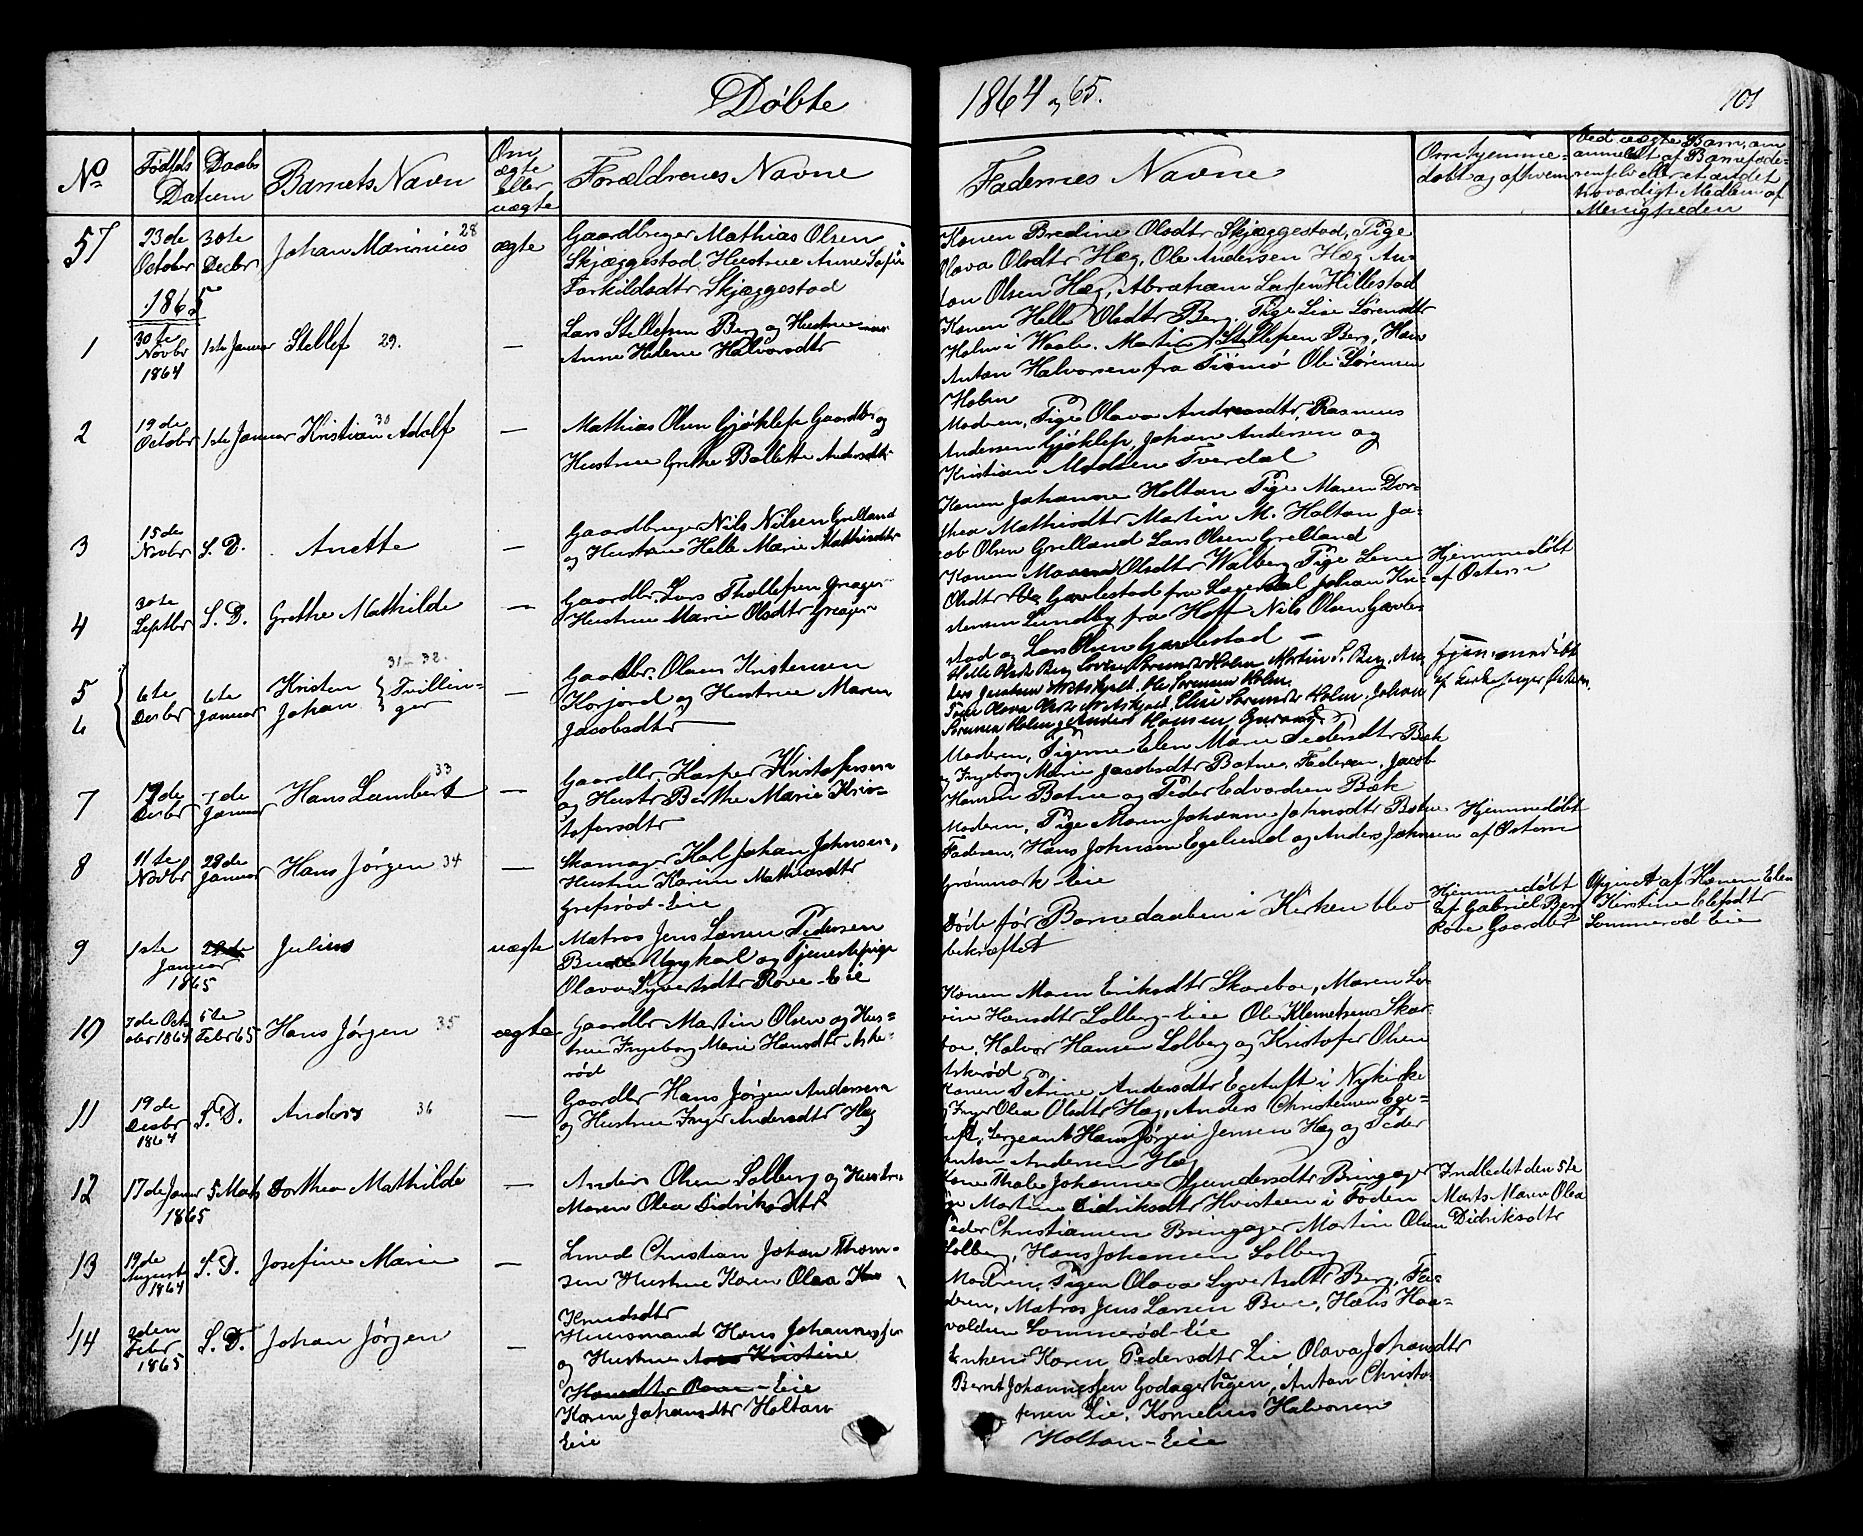 Døbte
1864 og 65.
101
No
Fødsels
Daabs
Datum
Barnets Navn
Om
ægte
eller
uægte
Forældrenes Navne
Faddernes Navne
Om hjemme-
døbt og af hvem
Ved uægte Barn, om
anmeldt af Barnefade-
ren selv eller et andet
troværdigt Medlem af
Menigheden
57
23de
October
30te
Decbr
Johan Marinius 28
ægte
Gaardbruger Mathias Olsen
Skjæggestad, Hustrue Anne Sofie
Torkildsdtr Skjæggestad
Konen Bredine Olsdtr Skjæggestad, Pige
Olava Olsdtr Hæg, Ole Andersen Hæg An-
ton Olsen Hæg, Abraham Larsen Hillestad
1865
1
30te
Novbr
1864
1ste Januar
Stellef 29.
—
Lars Stellefsen Berg og Hustrue
Anne Helene Halvorsdtr
Konen Helle Olsdtr Berg. Pige Lise Sørensdtr
Holm i Waale. Martin Stellefsen Berg, Hans
Anton Halvorsen fra Tjømø Ole Sørensen
Holm
2
19de
October
1ste Januar
Kristian Adolf 30
—
Mathias Olsen Gjøklep Gaardbr og
Hustrue Grethe Bollette Andersdtr
Modren, Pige Olava Andreasdtr, Rasmus
Andersen Gjøklep, Johan Andersen og
Kristian Madsen Tverdal
3
15de
Novbr
S. D.
Anette
—
Gaardbruger Nils Nilsen Grelland
og Hustrue Helle Marie Mathisdtr
Konen Johanne Holtan Pige Maren Dor-
thea Mathisdtr Martin M. Holtan Ja-
cob Olsen Grelland Lars Olsen Grelland
4
30te
Septbr
S. D.
Grethe Mathilde
—
Gaardbr. Lars Thollefsen Greager
Hustrue Marie Olsdtr Greager
Konen Maren Olsdtr Walberg Pige Lene
Olsdtr Gavlestad fra Laugerdal Johan Kri-
stensen Lundby fra Hoff Nils Olsen Gavle-
stad og Lars Olsen Gavlestad
Hjemmedøbt
af Østern
5
6
6te
Desbr
6te
Januar
31 32.
Kristen
Johan
Tvillin-
ger
—
Gaardbr. Olaus Kristensen
Korjord og Hustrue Maren
Jacobsdtr
Helle Olsdtr Berg Lovise Sørensdtr Holm Martin S. Berg, An-
ders Jacobsen Ole Sørensen Holm.
Pige Olava Olsdtr Elise Sørensdtr Holm, Johan
Sørensen Holm og Anders Hansen
Hjemmedøbt
af Kirkesanger Østern.
7
19de
Desbr
7de
Januar
Hans Lambert 33
—
Gaardbr. Kasper Kristofersen
og Hustr Berthe Marie Kris-
tofersdtr
Modren, Pigerne Elen Marie Pedersdtr Bæk
og Ingeborg Marie Jacobsdtr Botne, Faderen, Jacob
Hansen Botne og Peder Edvardsen Bæk
8
11te
Novbr
28de
Januar
Hans Jørgen 34
—
Skomager Karl Johan Johnsen,
Hustru Karine Mathiasdtr
Grefsrød-Eie
Modren, Pige Maren Johanne Johnsdtr Botne
Faderen, Hans Johnsen Egelund og Anders Johnsen
Grønmark-Eie
Hjemmedøbt
af Østern
9
1ste
Januar
1865
Julius
uægte
Matros Jens Larsen Pedersen
Bue Ungkarl og Tjenestepige
Olava Syvertsdtr Rove-Eie
Døde før Barnedaaben i Kirken blev
bekræftet
Hjemmedøbt
af Gabriel Berg
Rove Gaardbr
Opgivet af Konen Elen
Kirstine Olefsdtr
Sommerød Eie
10
7de Oct-
ober 1864
5te
Febr 65
Hans Jørgen 35
ægte
Gaardbr Martin Olsen og Hus-
true Ingeborg Marie Hansdtr Aske-
rød
Konen Maren Eriksdtr Skareboe, Maren Lo-
vise Hansdtr Solberg-Eie Ole Klemetsen Skar-
boe, Halvor Hansen Solberg og Kristofer Olsen
Askerød
11
19de
Desbr
1864
S. D.
Anders 36
—
Gaardbr Hans Jørgen Andersen
og Hustrue Inger Andersdtr Hæg
Konen Petrine Andersdtr Egetuft i Nykirke
Inger Olea Olsdtr Hæg, Anders Christensen Ege-
tuft, Sergeant Hans Jørgen Jensen Hæg og Peder
Anton Andersen Hæg
12
17de Januar
1865
5 Marts
Dorthea Mathilde
—
Anders Olsen Solberg og Hustru
Maren Olea Didriksdtr
Kone Thale Johanne Gundersdtr Bringager
Pige Martine Didriksdtr Hvisteen i Foden
Peder Christiansen Bringager Martin Olsen
Solberg, Hans Johansen Solberg
Indledet den 5te
Marts Maren Olea
Didriksdtr
13
19de
August
1864
S. D.
Josefine Marie
—
Smed Christian Johan Thom-
sen Hustrue Karen Olea
Knudsdtr
Modren, Pigen Olava Syvertsdtr Berg, Fa-
dren, Matros Jens Larsen Bue, Hans Haa-
valdsen Sommerød-Eie
14
2den
Febr
1865
S. D.
Johan Jørgen
—
Huusmand Hans Johannesen
og Hustrue Kristine
Hansdtr Rove-Eie
Karen Johansdtr Holtan
Eie
Enken Karen Pedersdtr Eie Olava Johansdtr
Bernt Johannessen Godager, Anton Christo-
fersen Eie, Kornelius Halvorsen
Holtan-Eie